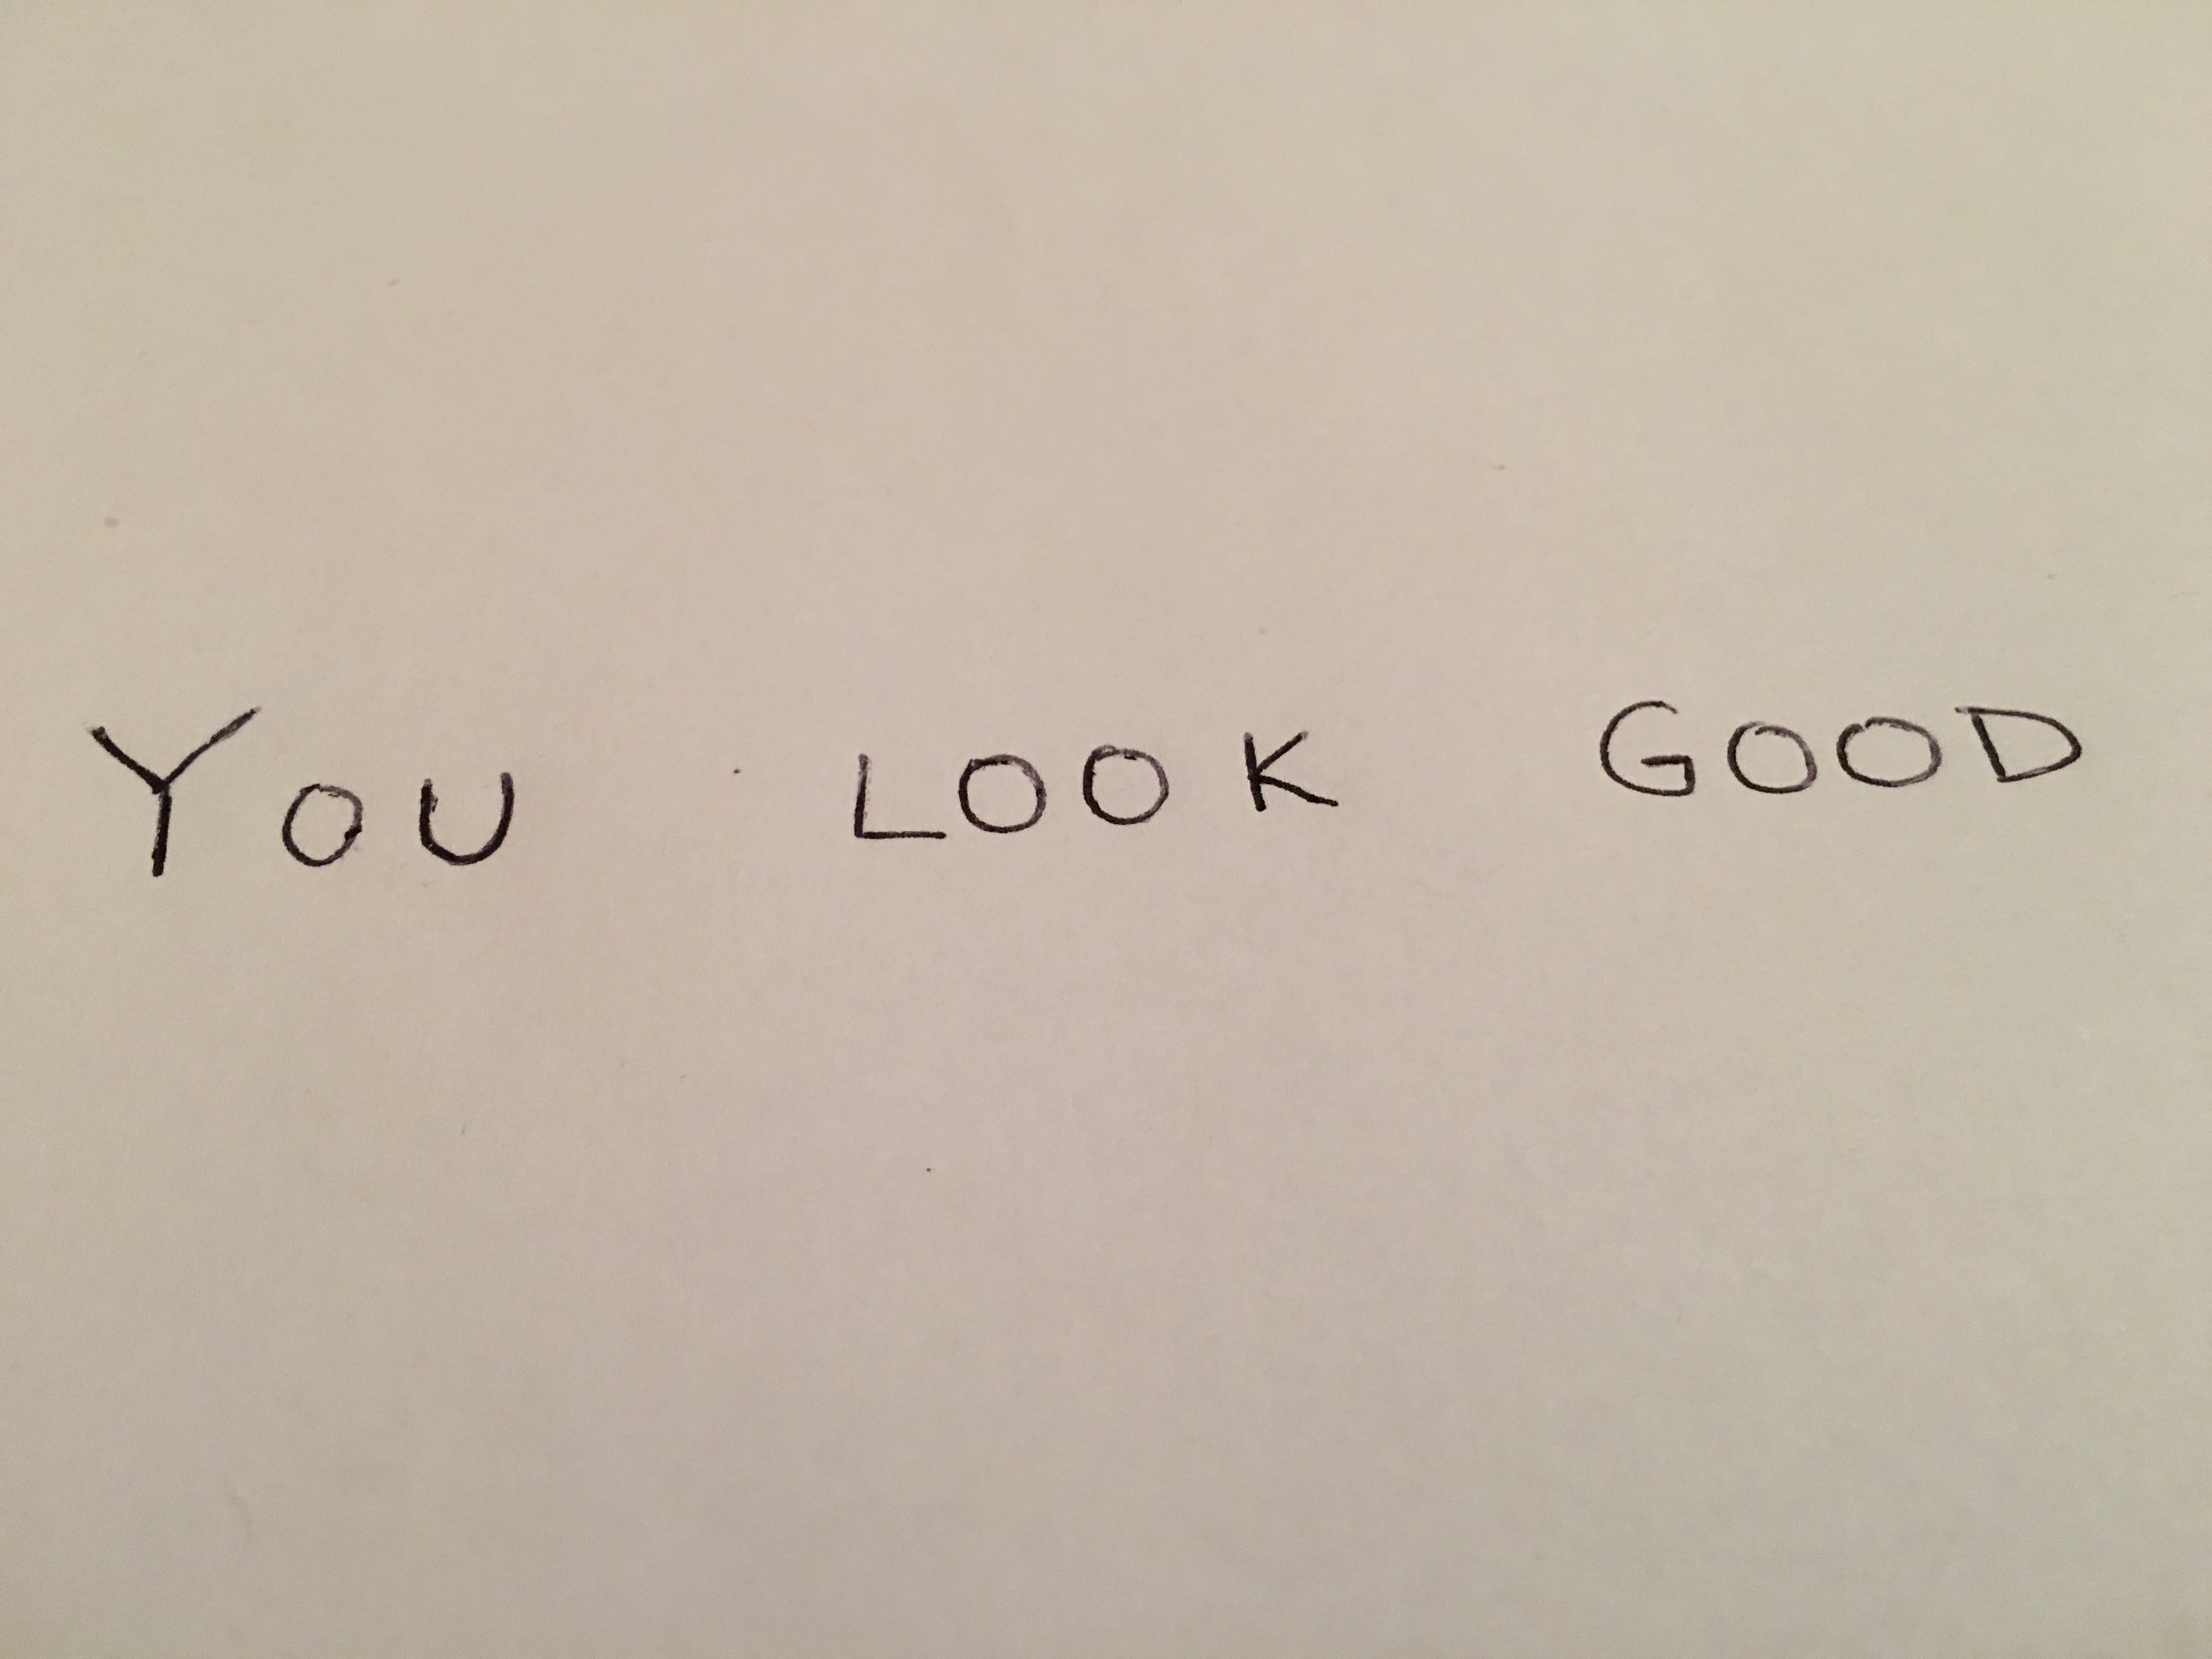 YOU LOOK GOOD